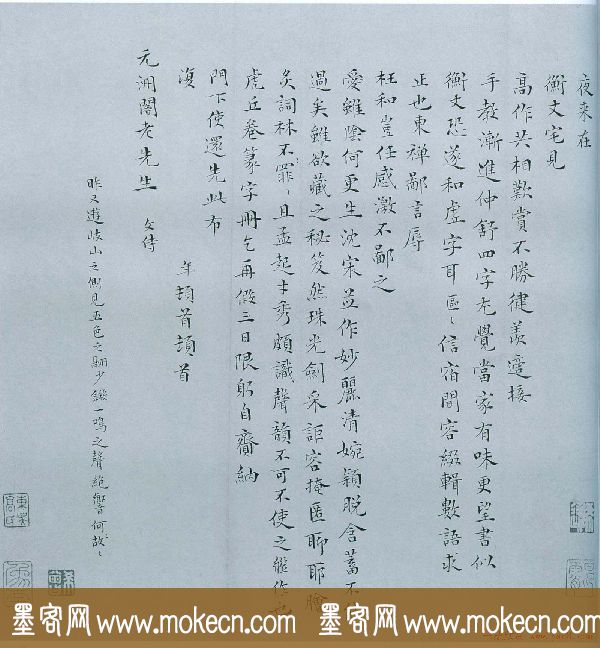 夜来在
衡丈宅見
高作共相歎賞不勝健羨邅接
手教漸進仲舒四字尤覺當家有味更望書似
衡丈恐遂和虛字耳區〻信宿間容綴輯數語求
正也東禪鄙言辱
枉和豈任感激不鄙之
愛雖陰何更生沈宋並作妙麗清婉穎脫含蓄不
過矣雖欲藏之秘笈然珠光劍采詎容掩匿聊耶膾
炙詞林不罪〻且孟起才秀頗識聲韻不可不使之繼作
虎丘卷篆字冊乞再假三日限躬自齎納
門下使還先此布
復
年頓首頓首
元洲閣老先生
文侍
昨又遊岐山之側見五色之 少 一鳴之聲絕響何故〻
墨客网 www.mokecn.com 墨客网 www.mokecn.com